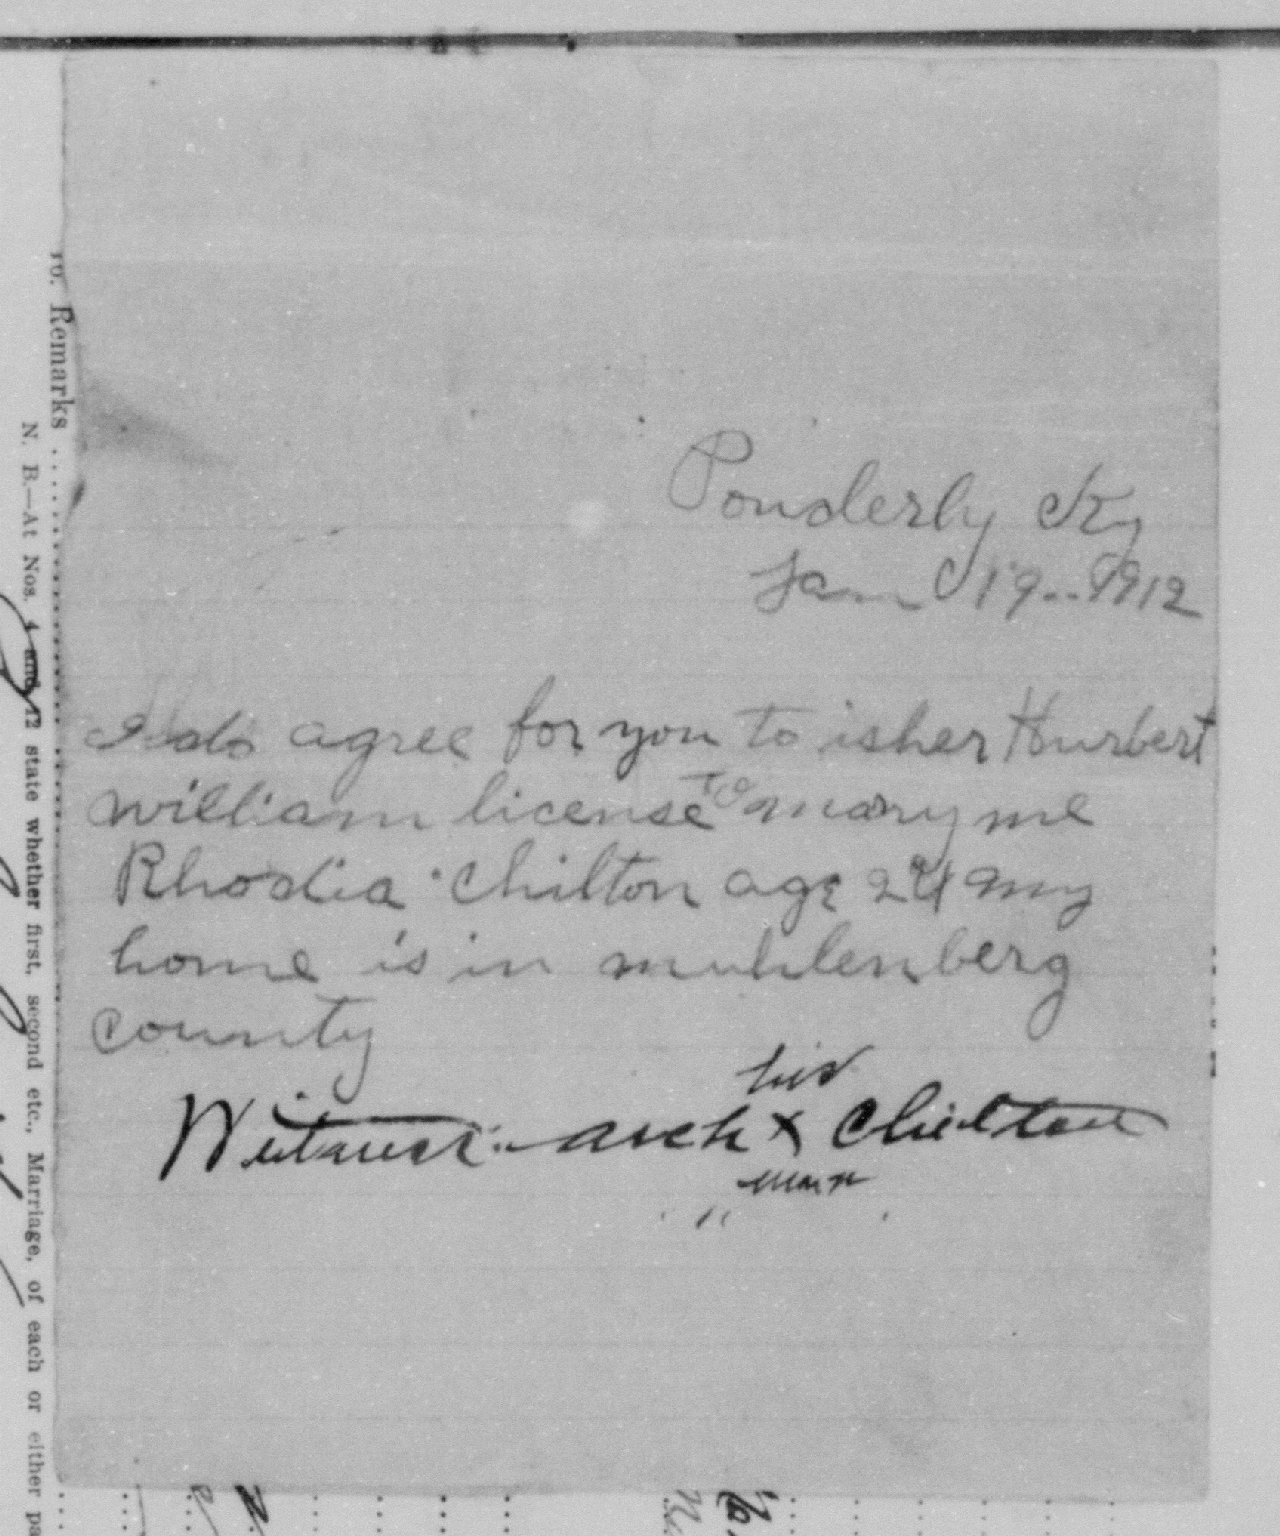 Ponderly Ky
Jan 19..1912
I do agree for you to isher Hurbert
william license to mary me
Rhodia Chilton age 21 my
home is in muhlenberg
county
his
Witness: Arch X Chilton
mark
10. Remarks
N. B.—At Nos. 4 and 12 state whether first, second etc., Marriage, of each or either pa